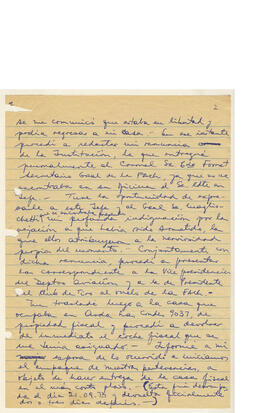 2
se me comunicó que estaba en libertad y
podía regresar a mi casa.- En ese instante
procedí a redactar mi renuncia
de la Institución, la que entregué
personalmente al Coronel Sr
Secretario Gral de la FACh, ya que no se
encontraba en su oficina el Sr.
Jefe. Tuve la oportunidad de expre-
sarle a este Jefe y al Gral Sr
mi profunda indignación por la
vejación a que había sido sometido, la
que ellos atribuyeron a la nerviosidad
propia del momento. Conjuntamente con
dicha renuncia procedí a presentar
la correspondiente a la Vice presidencia
del Deptvo Aviación y a la de Presidente
del Club de Tiro al vuelo de la Fach.-
Me traslade luego a la casa que
ocupaba en Avda 9037, de
propiedad fiscal y procedí a devolver
de inmediato el coche fiscal que se
me tenía asignado. Informé a mi
esposa de lo ocurrido e iniciamos
el empaque de nuestras pertenencias, a
objeto de hacer entrega de la casa fiscal
en el más corto plazo.
el día 21.09.73 y devuelta
dos o tres días después.-